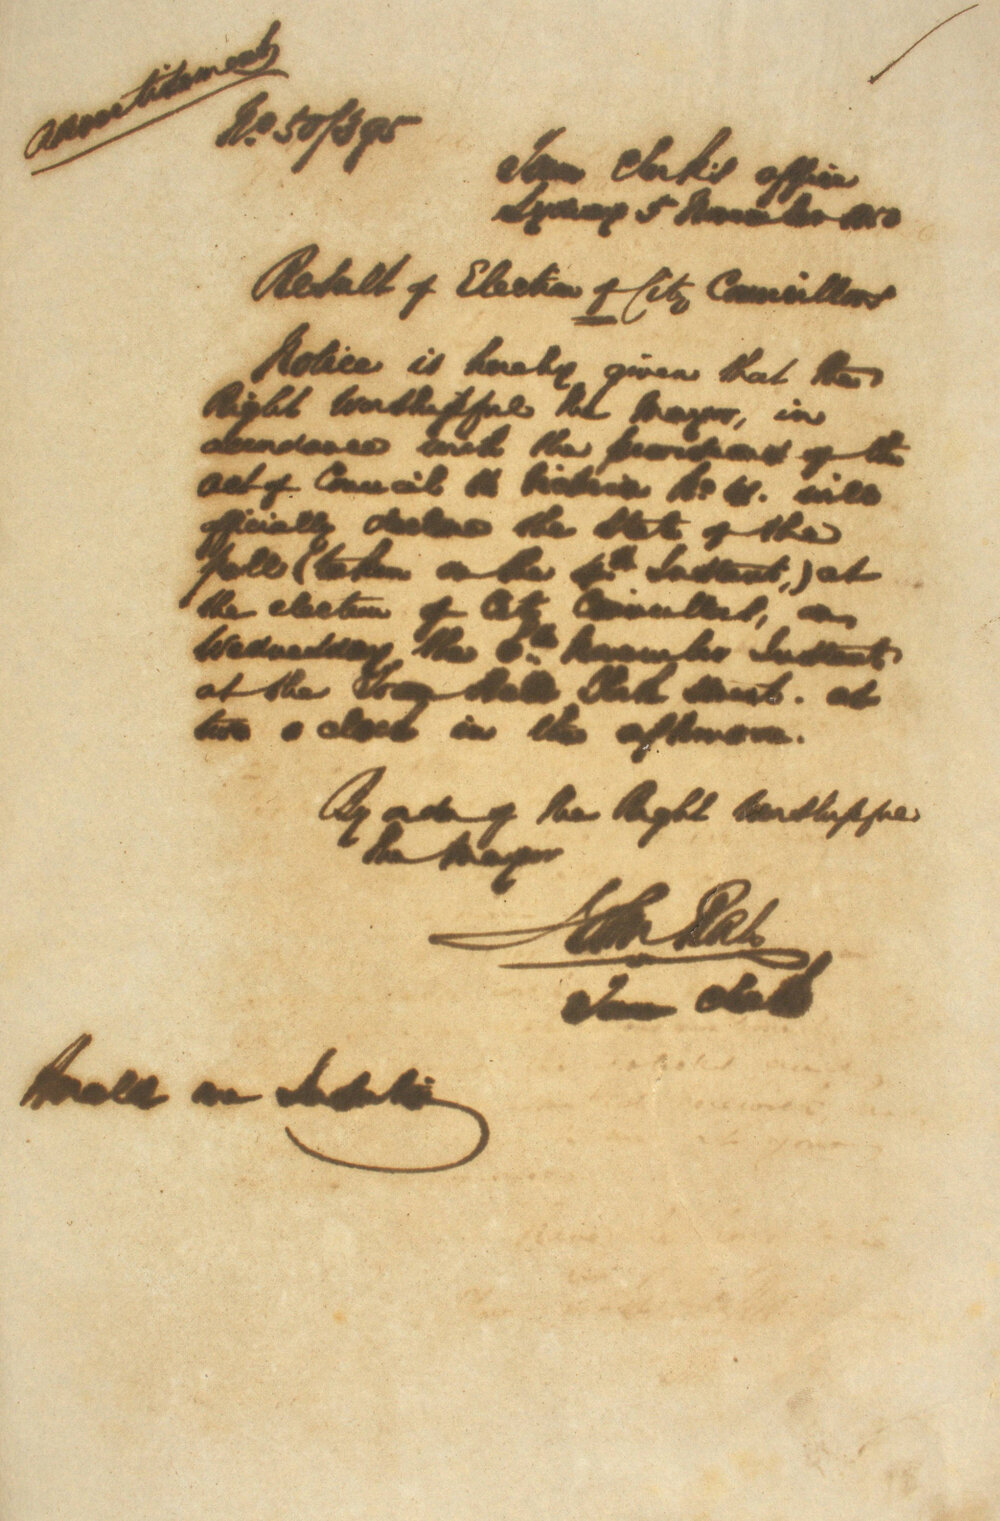 Advertisement
No. 50/395
Town Clerk's office
Sydney 5 November 1850
Result of Election of City Councillors
Notice is hereby given that the
Right Worshipful the Mayor, in
accordance with the provisions of the
act of Council 14 Victoria No 41. will
officially declare the State of the
Poll (taken on the 4th Instant,) at
the election of City Councillors, on
Wednesday the 6th November Instant
at the Town Hall York Street. at
two o clock in the afternoon.
By order of the Right Worshipful
the Mayor
John
Town Clerk
Herald one Insertion